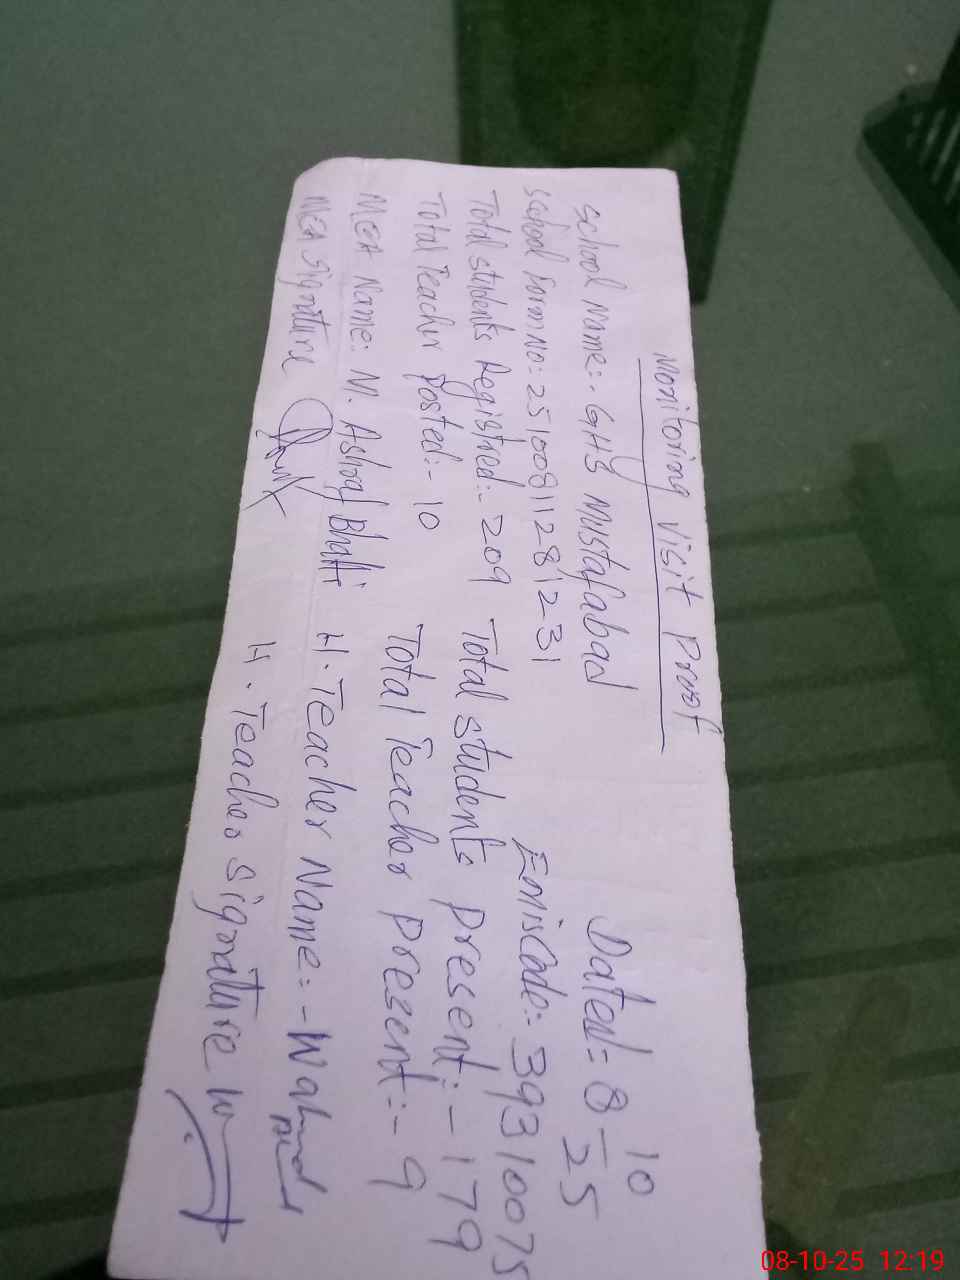 Monitoring Visit Proof
Dated= 8-10-25
School Name:- GHS Mustafabad
School Form No:- 2510081128 1231 Emiscode:- 39310075
Total students Registred:- 209 Total students Present:- 179
Total Teacher Posted:- 10 Total Teacher Present:- 9
MEA Name: M. Ashraf Bhatti H. Teacher Name:- Waheed
MEA Signature H. Teacher Signature
08-10-25 12:19